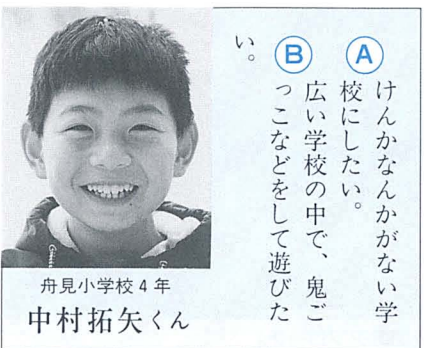 Ⓐ
けんかなんかがない学
校にしたい。
Ⓑ
広い学校の中で、鬼ご
っこなどをして遊びた
い。
舟見小学校4年
中村拓矢くん